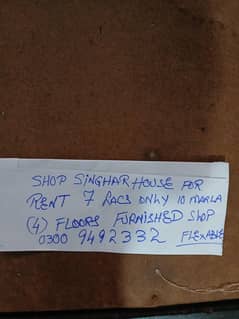 SHOP SINGHAR HOUSE FOR
RENT 7 LACS ONLY 10 MARLA
(4) FLOORS FURNISHED SHOP
0300 9492332 FLEXABLE